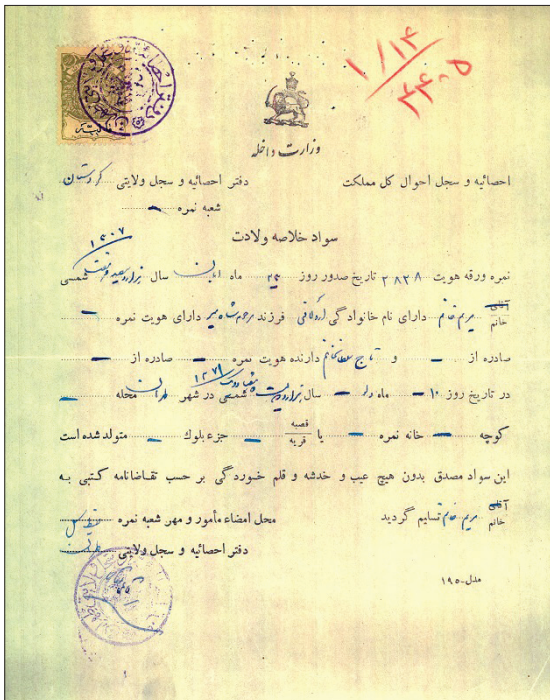 ۱/۱۴
۴۴۰۵
وزارت داخله
احصائیه و سجل احوال کل مملکت دفتر احصائیه و سجل ولایتی کردستان
شعبه نمره
سواد خلاصه ولادت
۱۳۰۷
نمره ورقه هویت ۲۸۳۸ تاریخ صدور روز ماه ابان سال هزار و سیصد و هفت شمسی
آقای
خانم مریم خانم دارای نام خانوادگی اردلانی فرزند دارای هویت نمره
صادره از و تاج خانم دارنده هویت نمره صادره از
۱۲۷۱
در تاریخ روز ۱۰ ماه سال هزار و دویست و هفتاد و یک شمسی در شهر محله
کوچه خانه نمره یا قصبه قریه جزء بلوک متولد شده است
این سواد مصدق بدون هیچ عیب و خدشه و قلم خوردگی بر حسب تقاضانامه کتبی به
آقای
خانم مریم خانم تسلیم گردید محل امضاء مأمور و مهر شعبه نمره
دفتر احصائیه و سجل ولایتی
مدل-۱۹۵